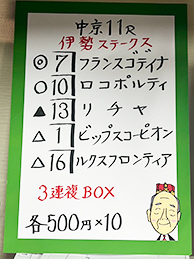 中京11R
伊勢ステークス
◎7 フランスゴデイナ
○10 ロコポルティ
▲13 リチャ
△1 ビップスコーピオン
△16 ルクスフロンティア
3連複BOX
各500円×10